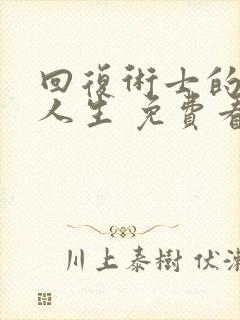 回復術士的
人生 免費看
川上泰樹 伏瀬